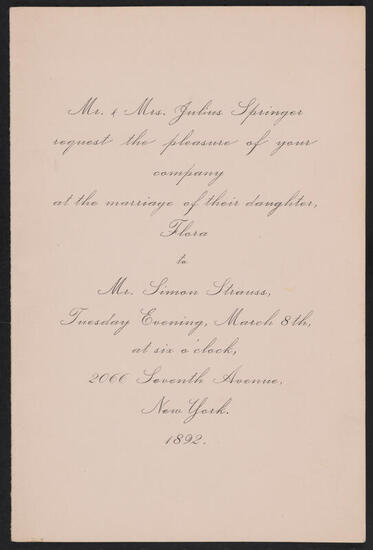 Mr. & Mrs. Julius Springer
request the pleasure of your
company
at the marriage of their daughter,
Flora
to
Mr. Simon Strauss,
Tuesday Evening, March 8th,
at six o'clock,
2066 Seventh Avenue,
New York.
1892.